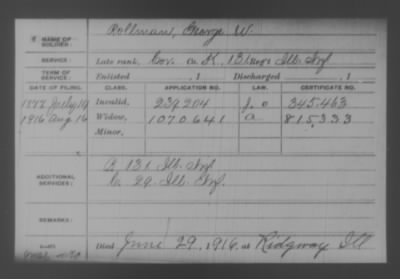 NAME OF SOLDIER: Rollman, George W.
SERVICE: Late rank, Cor. Co. K, 131 Reg't Ill. Inf
TERM OF SERVICE: Enlisted , 1 Discharged , 1
DATE OF FILING. CLASS. APPLICATION NO. LAW. CERTIFICATE NO.
1877 July 19 Invalid, 239204 345.463
1916 Aug 16 Widow, 1070.641 a 815.333
Minor,
ADDITIONAL SERVICES: B. 131 Ill. Inf.
C. 29. Ill. Inf.
REMARKS:
Died June 29, 1916, at Ridgway Ill